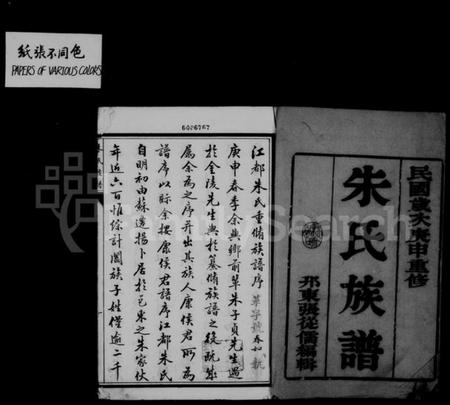 紙張不同色
PAPERS OF VARIOUS COLORS
6026767
民國歲次庚申重修
朱氏族譜
邗東張從儒編輯
江都朱氏重脩族譜序
庚申春季余與鄉前輩朱子貞先生遇
於金陵先生與於纂脩族譜之役既蕆
屬余為之序并出其族人康侯君所為
譜序以眎余按康侯君譜序江都朱氏
自明初由蘇遷揚卜居於邑東之朱家伙
年近六百惟綜計闔族子姓僅逾二千
FamilySearch